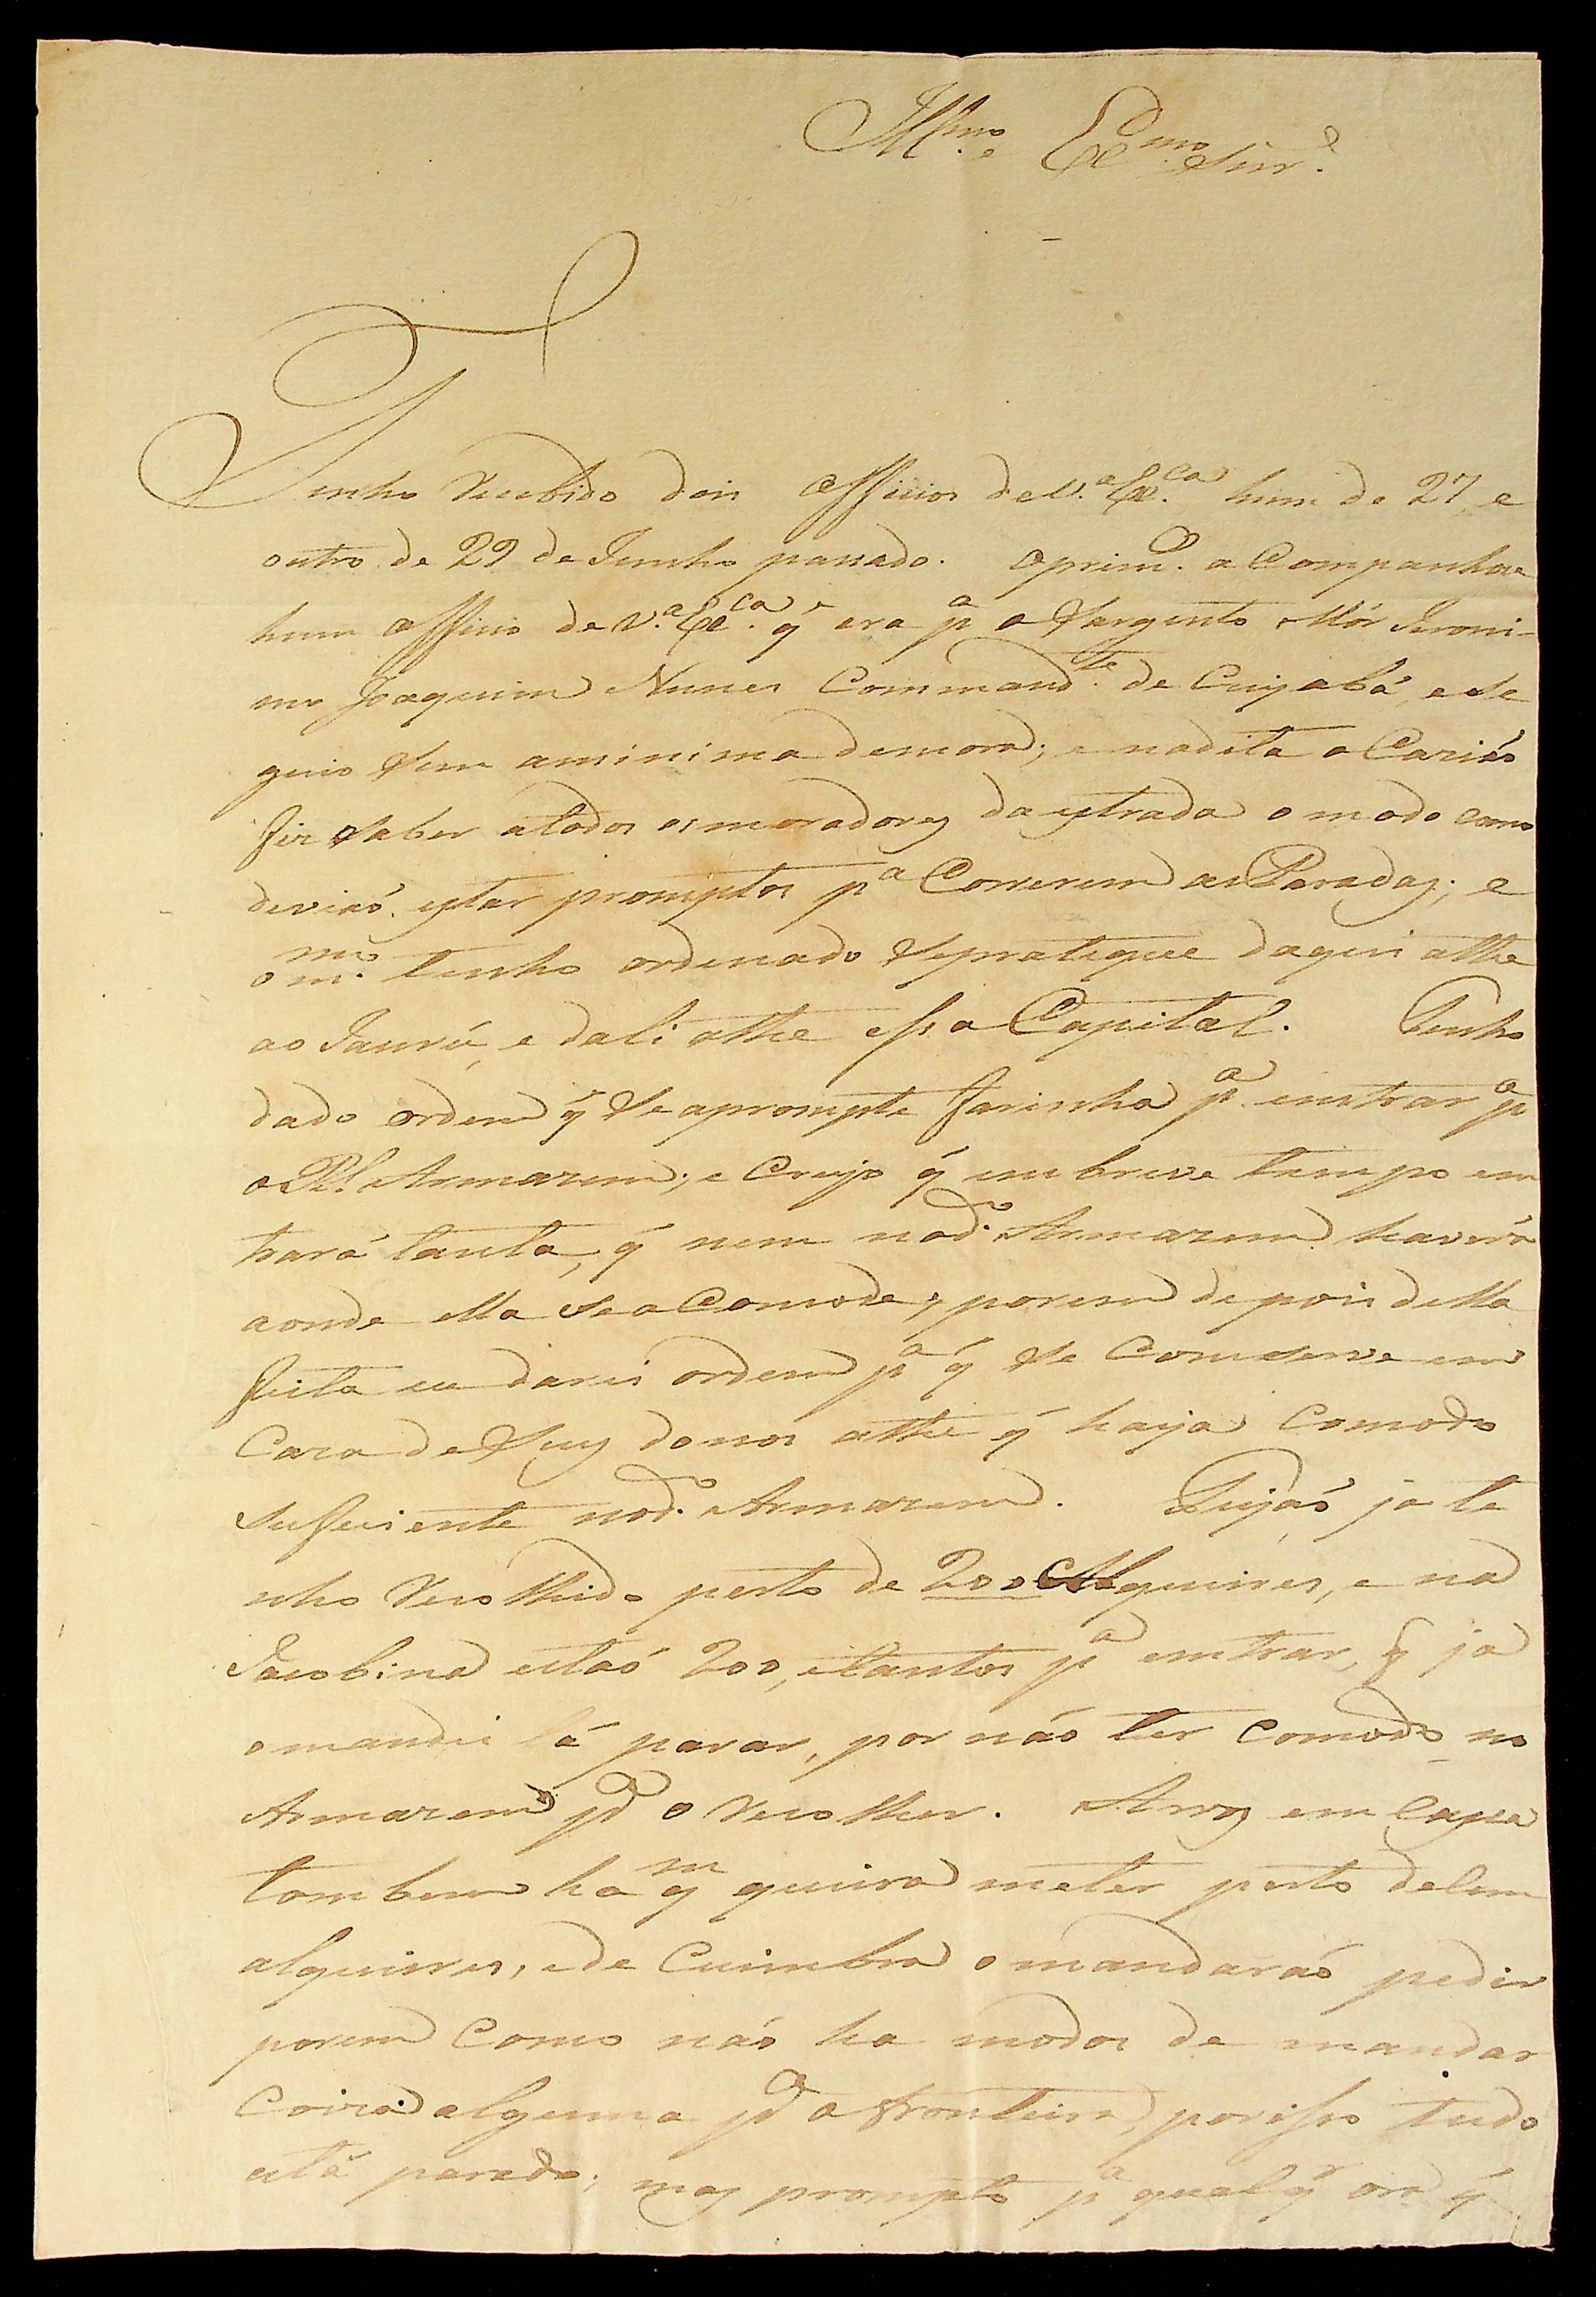 Ill.mo e Ex.mo Snr.
Tenho recebido dois officios de V.a Ex.ca hum de 27, e
outro de 29 de Junho passado. O prim.o a Companhou
hum officio de V.a Ex.ca q̃ era p.a o Sargento Mór Jeroni-
mo Joaquim Nunes Command.te de Cuyabá, e se
guio sem a minima demora; e na dita o Cazião
fiz saber a todos os moradores da estrada o modo como
devião estar promptos p.a Correrem as Paradas; e
o m.mo tenho ordenado se pratique daqui athe
ao Jaurú, e dali athe essa Capital. Tenho
dado ordem q̃ se aprompte farinha p.a entrar p.a
o R.l Armazem; e Creyo q̃ em breve tempo en
trará tanta, q̃ nem no d.o Armazem haverá
aonde ella se a Comode; porem depois della
feita eu darei ordem p.a q̃ se Comserve em
Caza de seus donos athe q̃ haja Comodo
suficiente no d.o Armazem. Feijão ja te
nho recolhido perto de 200 Alqueires, e na
Jacobina estaó 200, e tantos p.a entrar, q̃ ja
o mandei lá parar, por não ter Comodo no
Armazem p.a o recolher. Arros em Casca
tambem ha q.m queira meter perto de Cem
alqueires, e de Cuimbra o mandarão pedir
porem Como não ha modos de mandar
Coiza alguma p.a a fronteira, por isso tudo
está parado; mas prompto p.a qualq.r ora q̃